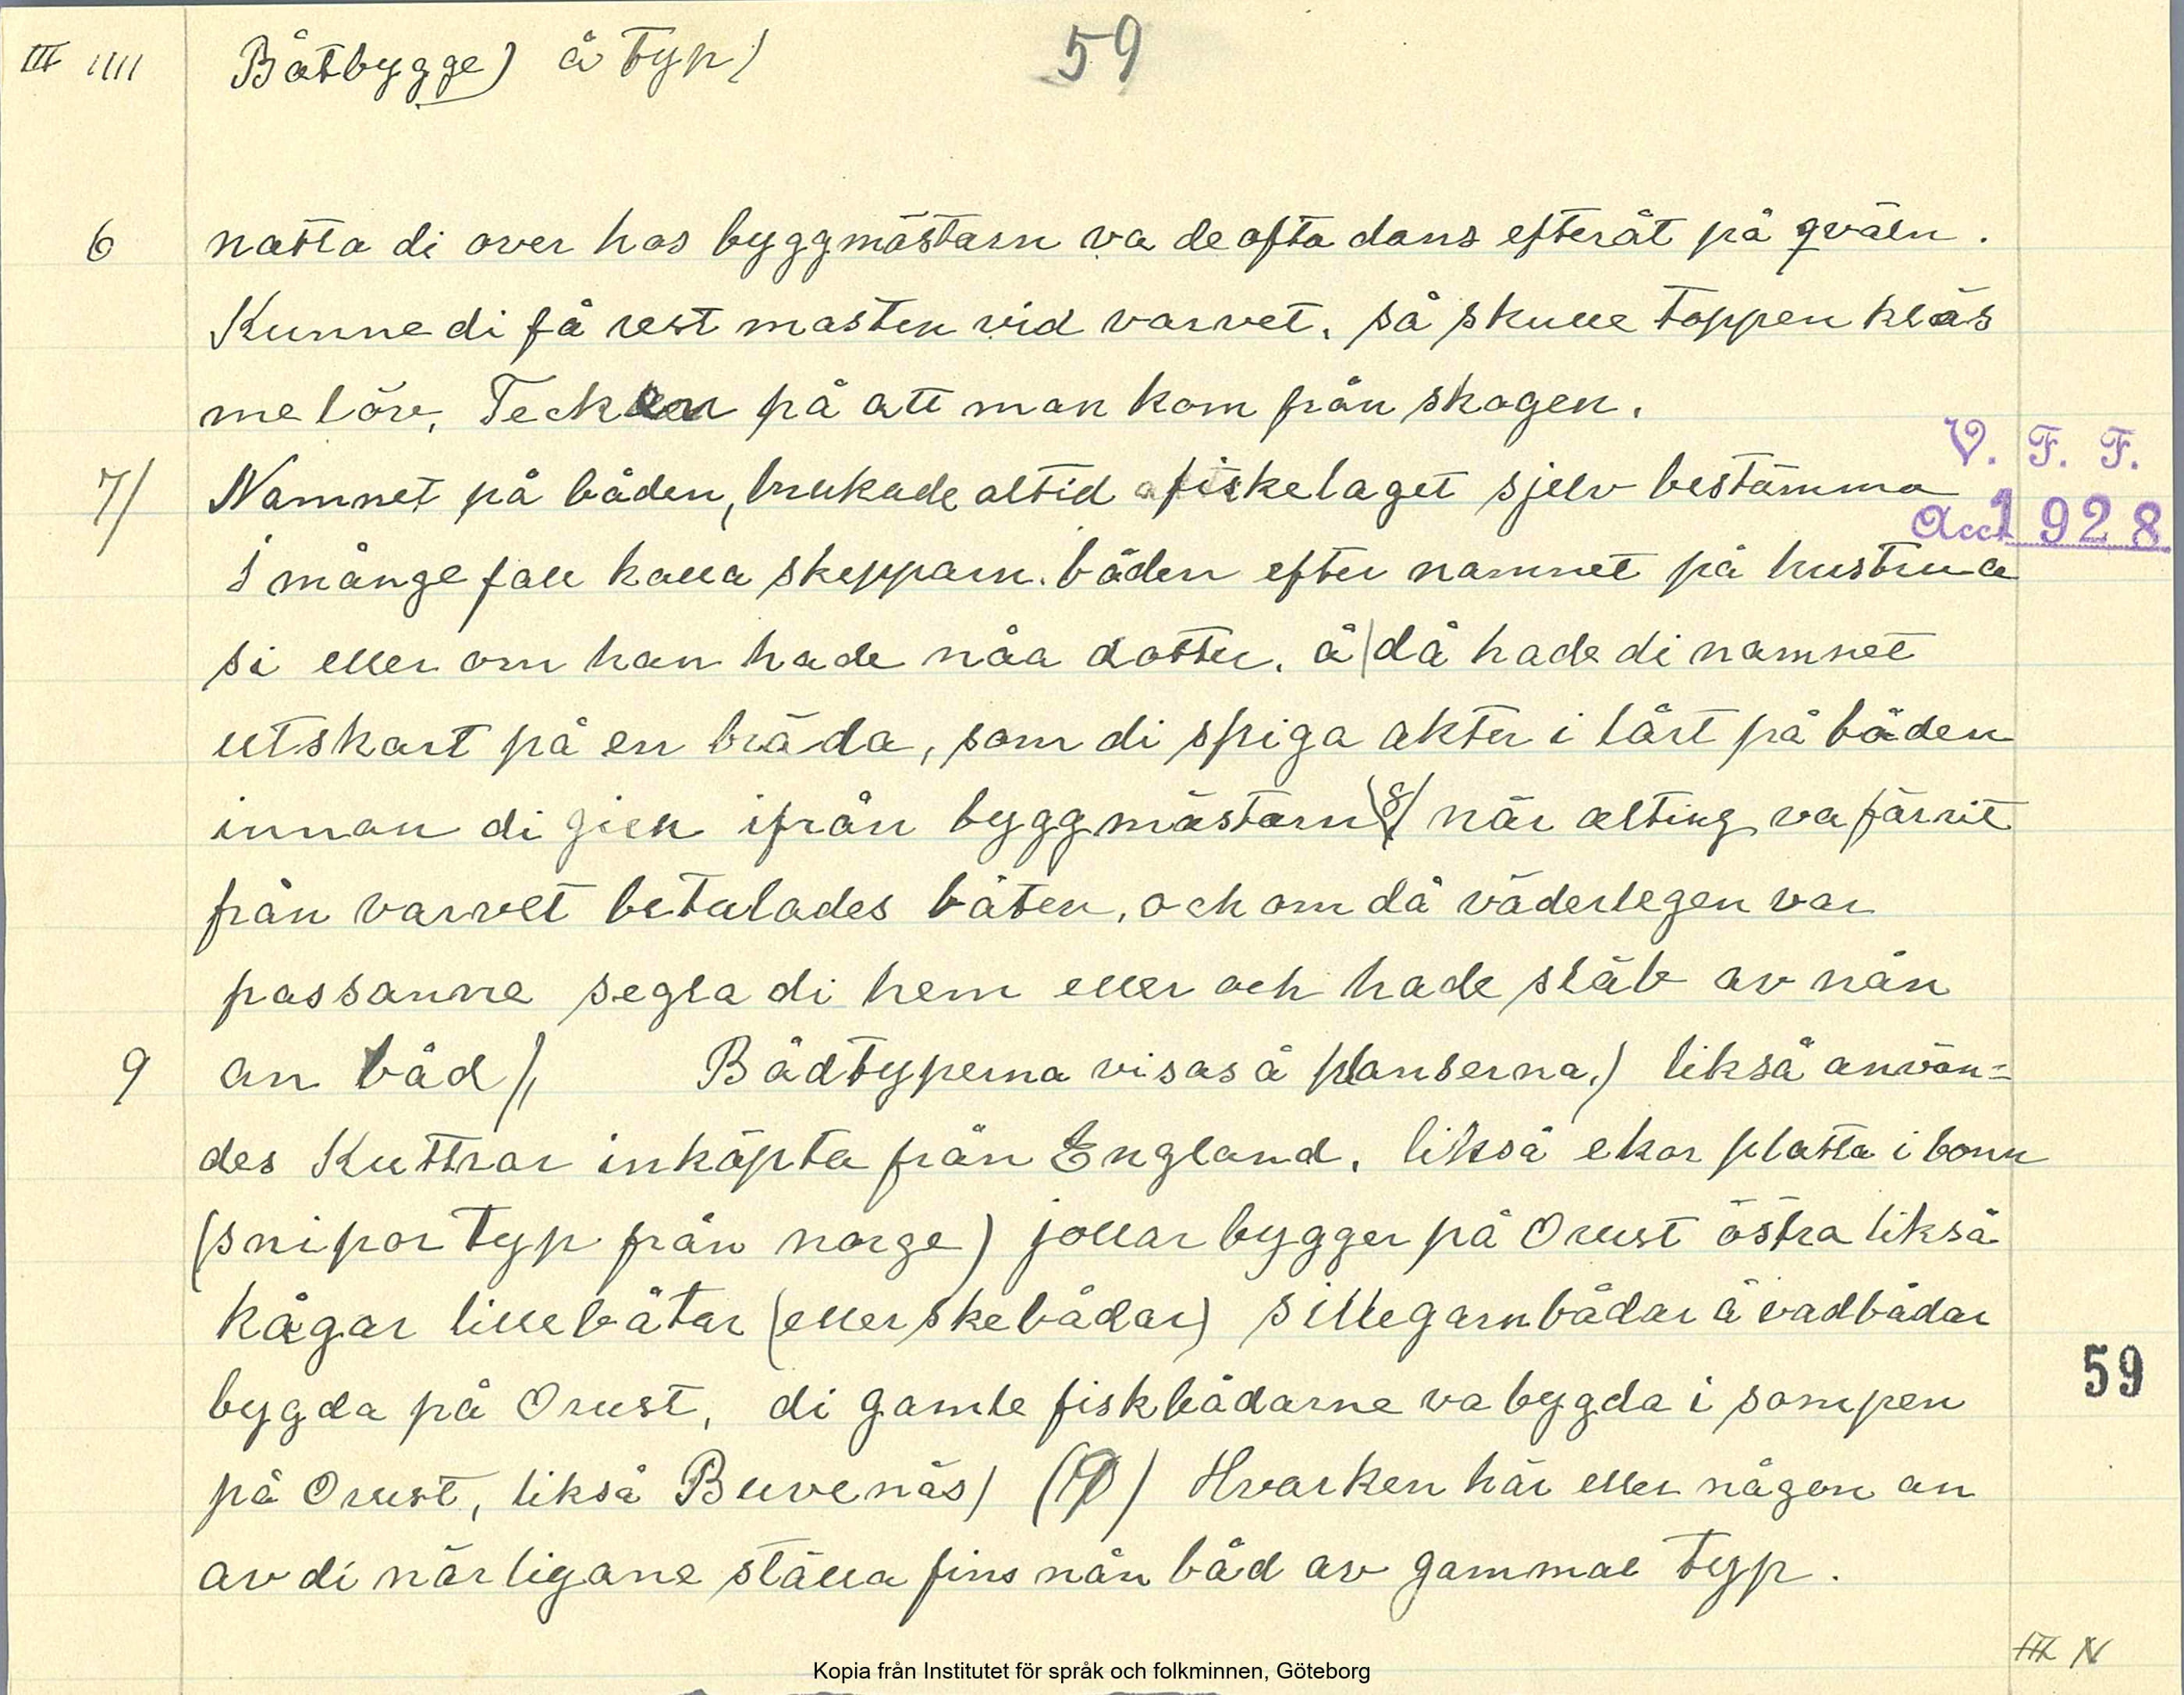 III IIII Båtbygge) å typ) 59
6 natta di over hos byggmästarn va de ofta dans efteråt på qväln.
Kunne di få rest masten vid varvet, så skulle toppen kläs
me löv, Tecken på att man kom från skogen.
V. F. F.
7/ Namnet på båden, brukade altid fiskelaget sjelv bestämma
Acc 1928
I månge fall kalla skepparn båden efter namnet på hustrua
si eller om han hade nåa dotter, å då hade di namnet
utskart på en bräda, som di spiga akter i lårt på båden
innan di gick ifrån byggmästarn 8/ när alting va färrit
från varvet betalades båten, och om då väderlegen var
passanne segla di hem eller och hade släb av nån
9 an båd // Bådtyperna visas å planserna,) likså använ=
des Kuttrar inköpta från England, likså ekor platta i bonn
(snipor typ från norge) jollar bygger på Orust östra likså
kågar lillebåtar (eller skebådar) sillegarnbådar å vadbådar
59
bygda på Orust, di gamle fiskbådarne va bygda i sompen
på Orust, likså Buvenäs) ( ) Hvarken här eller någon an
av di närligane ställa fins nån båd av gammal typ.
III N
Kopia från Institutet för språk och folkminnen, Göteborg